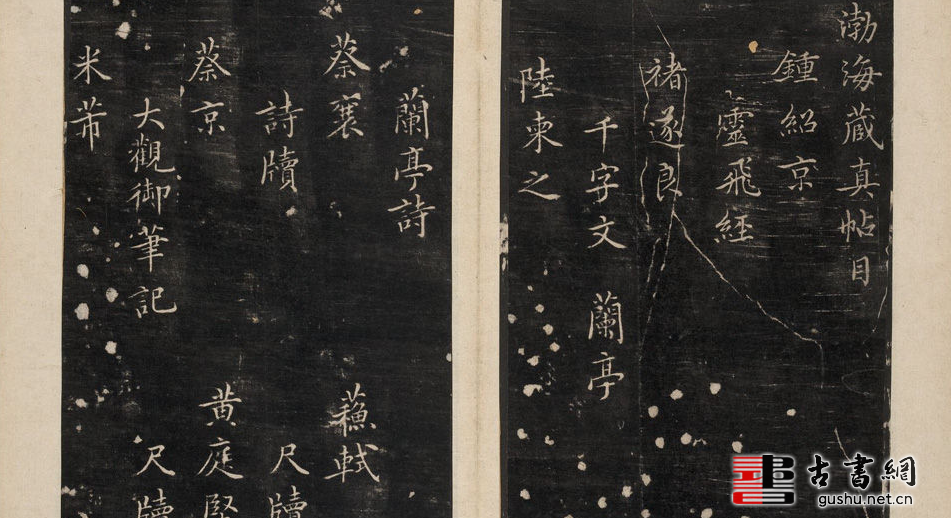 渤海藏真帖目
鍾紹京
靈飛經
褚遂良
千字文 蘭亭
陸柬之
蘭亭詩
蔡襄 蘓軾
詩牘 尺牘
蔡京 黄庭堅
大觀御筆記 尺牘
米芾
古書網
gushu.net.cn